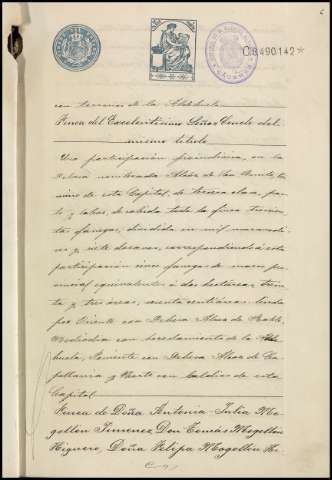 C.8490.142*
con terrenos de la Aldehuela
Finca del Excelentisimo Señor Conde del
mismo titulo
Una participacion proindivisa, en la
Dehesa nombrada Alcor de San Benito, ter
mino de esta Capital, de tercera clase, pas
to y labor, de cabida toda la finca trescien
tas fanegas, dividida en mil maravedi
ses y siete decimas, correspondiendo á esta
participacion cinco fanegas de marco pro
vincial equivalentes á dos hectareas, trein
ta y tres áreas, centiáreas: linda
por Oriente con Dehesa Alcor de
Mediodia con heredamiento de la Alde
huela, Poniente con Dehesa Alcor de Ca
pellania y Norte con baldios de esta
Capital
Finca de Doña Antonia Julia Mo
gollon Jimenez Don Tomás Mogollon
Higuero, Doña Felipa Mogollon Hi-